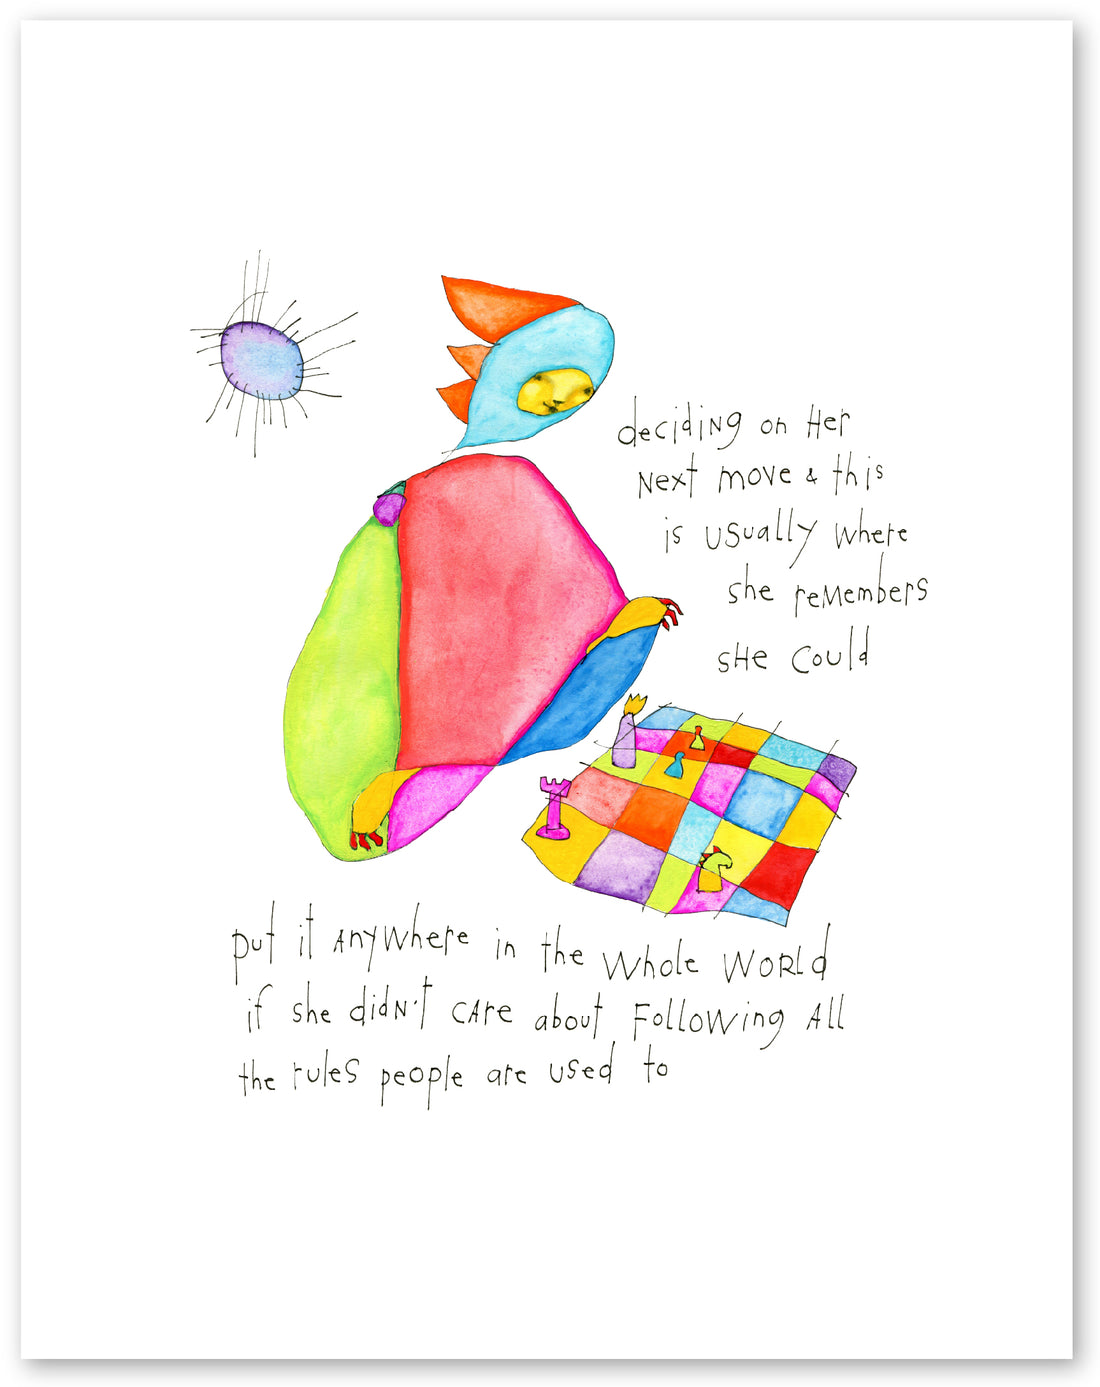 deciding on Her
Next move & this
is usually where
she remembers
sHe could
put it ANyWhere in the Whole WORLd
if she didN't CAre about Following All
the rules people are used to